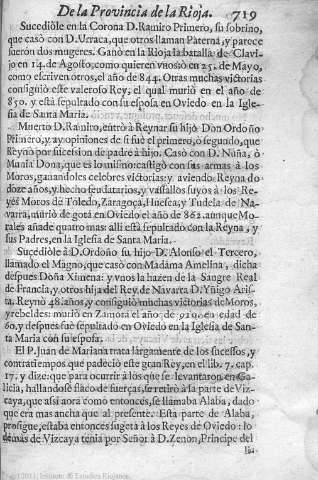 De la Provincia de la Rioja. 719
Sucediòle en la Corona D. Ramiro Primero, su sobrino,
que casò con D. Urraca, que otros llaman Paterna, y parece
fueron dos mugeres. Ganò en la Rioja la batalla de Clavi-
jo en 14. de Agosto, como quieren unos, ò en 25. de Mayo,
como escriven otros, el año de 844. Otras muchas victorias
consiguiò este valeroso Rey, el qual murió en el año de
850. y està sepultado con su esposa en Oviedo en la Igle-
sia de Santa Maria.
Muerto D. Ramiro, entrò à Reynar su hijo Don Ordoño
Primero, y ay opiniones de si fue el primero, ò segundo, que
Reynò por succission de padre à hijo. Casò con D. Nuña, ò
Munia Dona, que es lo mismo: castigò con sus armas à los
Moros, ganandoles celebres victorias: y aviendo Reynado
doze años, y hecho feudatarios, y vassallos suyos à los Re-
yes Moros de Toledo, Zaragoça, Huesca, y Tudela de Na-
varra, murió de gota en Oviedo el año de 862. aunque Mo-
rales añade quatro mas: alli està sepultado con la Reyna, y
sus Padres, en la Iglesia de Santa Maria.
Sucediòle à D. Ordoño su hijo D. Alonso el Tercero,
llamado el Magno, que casò con Madama Amelina, dicha
despues Doña Ximena: y unos la hazen de la Sangre Real
de Francia, y otros hija del Rey de Navarra D. Yñigo Aris-
ta. Reynò 48. años, y consiguiò muchas victorias de Moros,
y rebeldes: murió en Zamora el año de 910. en edad de
60. y despues fuè sepultado en Oviedo en la Iglesia de San-
ta Maria con su esposa.
El P. Juan de Mariana trata largamente de los sucessos, y
contratiempos que padeciò este gran Rey, en el lib. 7. cap.
17. y dize: que para ocurrir à los que se levantaron en Ga-
licia, hallandose flaco de fuerças, se retirò à la parte de Viz-
caya, que assi aora como entonces, se llamaba Alaba, dado
que era mas ancha que al presente. Esta parte de Alaba,
prosigue, estaba entonces sugeta à los Reyes de Oviedo: lo
demàs de Vizcaya tenia por Señor à D. Zenon, Principe del
Instituto de Estudios Riojanos